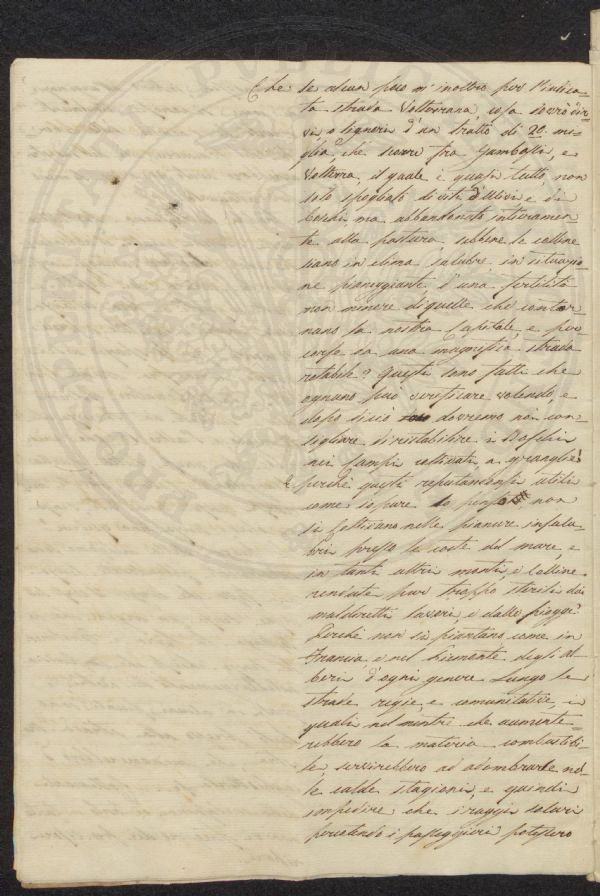 Che se alcun poco m'inoltro per l'indica-
ta strada Volterrana, cosa dovrò dir-
vi, o Signori d'un tratto di 20. mi-
glia, che scorre fra Gambassi, e
Volterra, il quale è quasi tutto, non
solo spogliato di viti d'Ulivi e di
boschi, ma abbandonato interamen-
te alla pastura, sebbene le colline
siano in clima salubre, in situazio-
ne pianeggiante, d'una fertilità
non minore di quelle che contor-
nano la nostra Capitale, e per
corse da una magnifica strada
rotabile? Questi sono fatti che
ognuno può verificare volendo, e
dopo di ciò dovremo noi con-
sigliare di ristabilire i Boschi
nei Campi coltivati a granaglie?
E perchè questi reputandosi utili
come io pure lo penso non
si coltivano nelle pianure insalu-
bri presso le coste del mare, e
in tanti altri monti, e colline
rendute pur troppo sterili dai
maldiretti lavori, e dalle piogge?
Perchè non si piantano come in
Francia, e nel Piemonte degli al-
beri d'ogni genere lungo le
strade regie, e comunitative, i
quali nel mentre che aumente-
rebbero la materia combustibi-
le, servirebbero ad adombrarle nel-
le calde stagioni, e quindi
impedire che i raggi solari
percotendo i passeggieri potessero